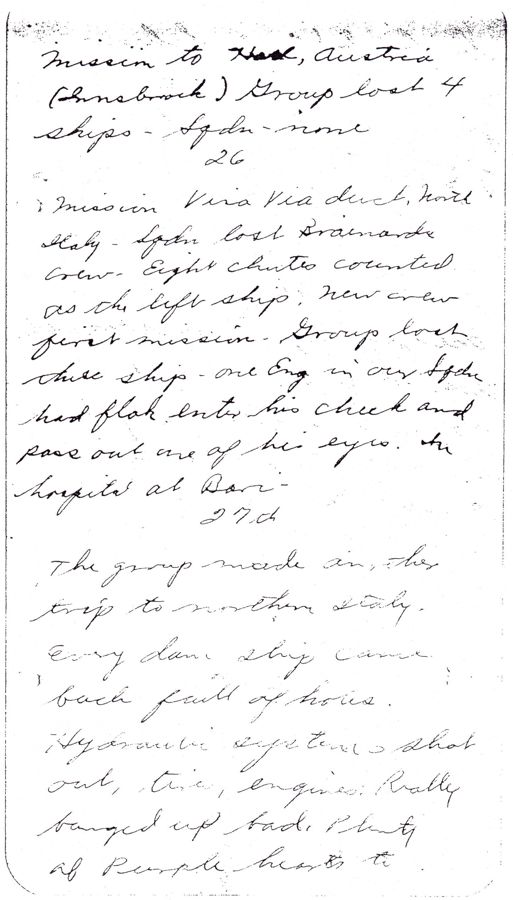 Mission to Hall, Austria
(Innsbrock) Group lost 4
ships - Sqdn - none
26
Mission Vira Via duct, North
Italy - Sqdn lost Brainards
crew - Eight chutes counted
as the left ship. New crew
first mission - Group lost
three ship - one Eng in our Sqdn
had flak enter his cheek and
pass out one of his eyes. In
hospital at Bari -
27th
The group made another
trip to northern Italy.
Every dam ship came
back full of holes.
Hydraulic systems shot
out, tire, engines. Really
banged up bad. Plenty
of Purple hearts to